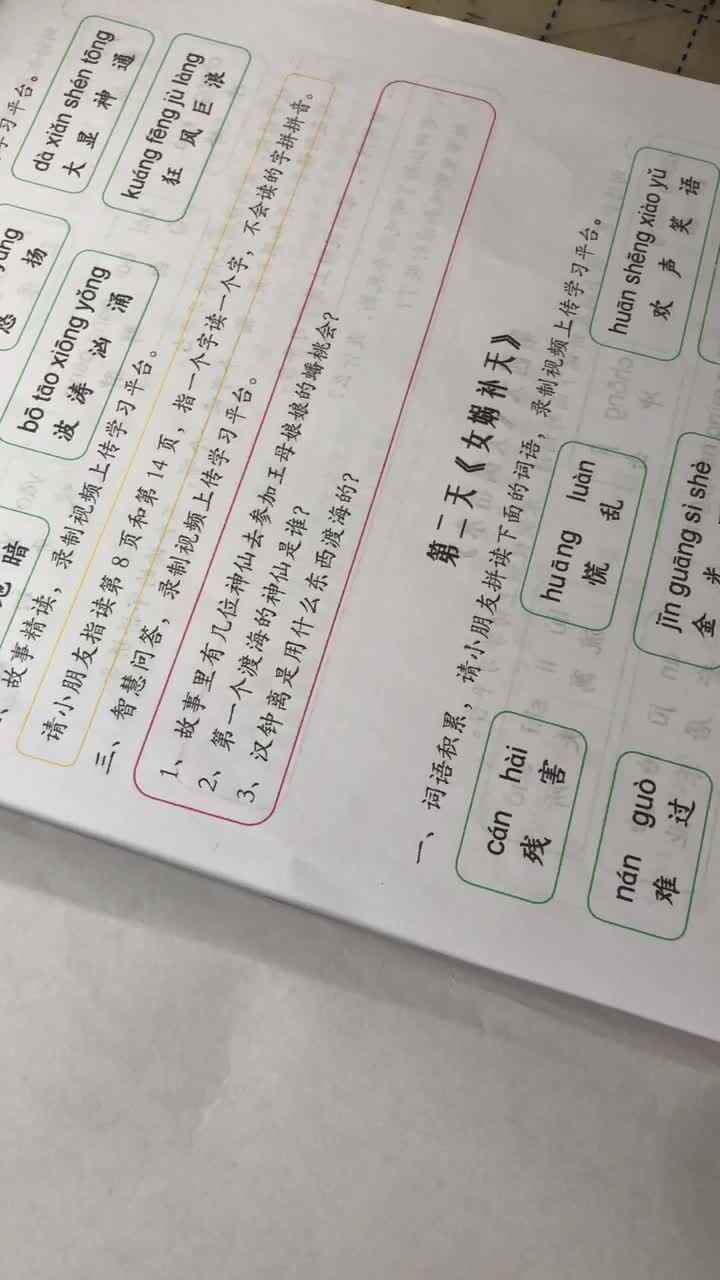 学习平台。
扬
dà xiǎn shén tōng
大 显 神 通
暗
bō tāo xiōng yǒng
波 涛 汹 涌
kuáng fēng jù làng
狂 风 巨 浪
故事精读,录制视频上传学习平台。
请小朋友指读第 8 页和第 14 页,指一个字读一个字,不会读的字拼拼音。
三、智慧问答,录制视频上传学习平台。
1、故事里有几位神仙去参加王母娘娘的蟠桃会?
2、第一个渡海的神仙是谁?
3、汉钟离是用什么东西渡海的?
第二天《女娲补天》
一、词语积累,请小朋友拼读下面的词语,录制视频上传学习平台。
cán hài
残 害
huāng luàn
慌 乱
huān shēng xiào yǔ
欢 声 笑 语
nán guò
难 过
jīn guāng sì shè
金 光